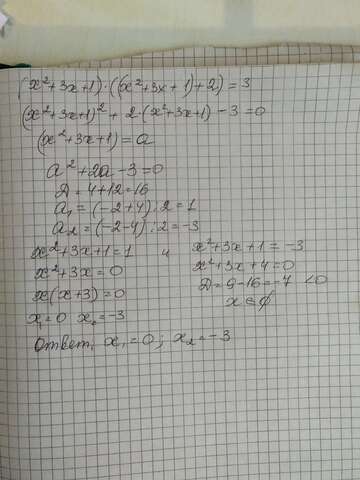 (x²+3x+1)·((x²+3x+1)+2)=3
(x²+3x+1)²+2·(x²+3x+1)-3=0
(x²+3x+1)=a
a²+2a-3=0
D=4+12=16
a₁=(-2+4):2=1
a₂=(-2-4):2=-3
x²+3x+1=1 и x²+3x+1=-3
x²+3x=0 x²+3x+4=0
x(x+3)=0 D=9-16=-7 <0
x₁=0 x₂=-3 x∈∅
Ответ: x₁=0; x₂=-3